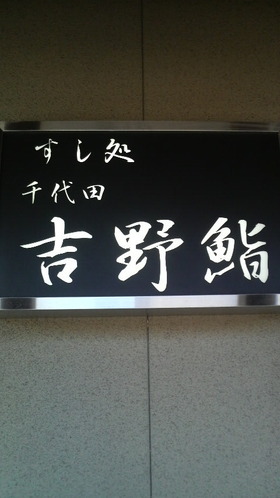 すし処
千代田
吉野鮨